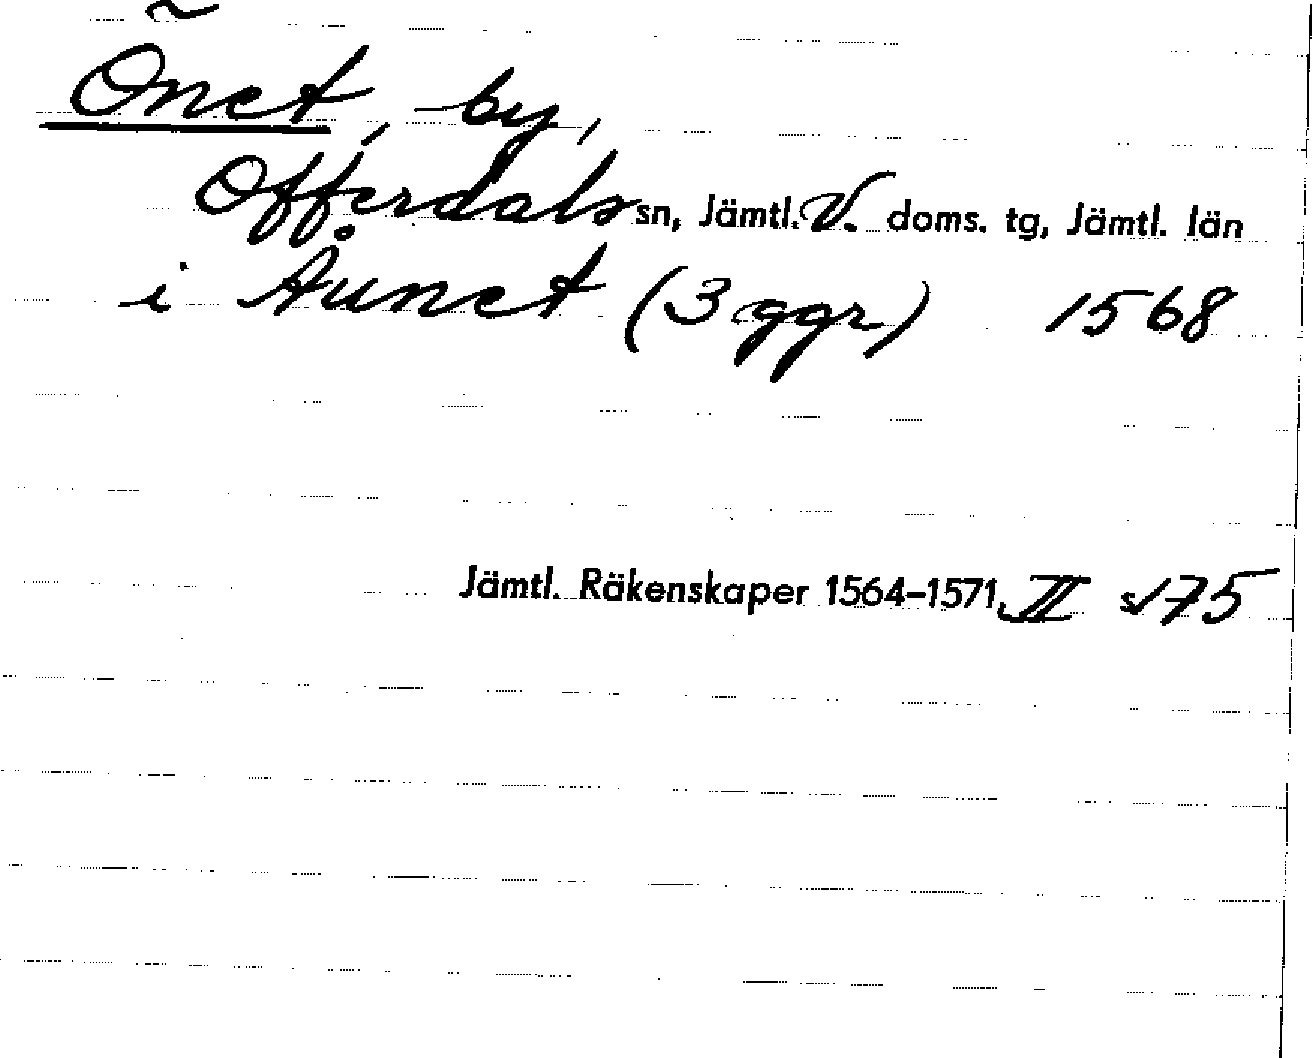 Önet, by,
Offerdals sn, Jämtl. V. doms. tg, Jämtl. län
i Åunet (3 ggr) 1568
Jämtl. Räkenskaper 1564–1571, II s. 175